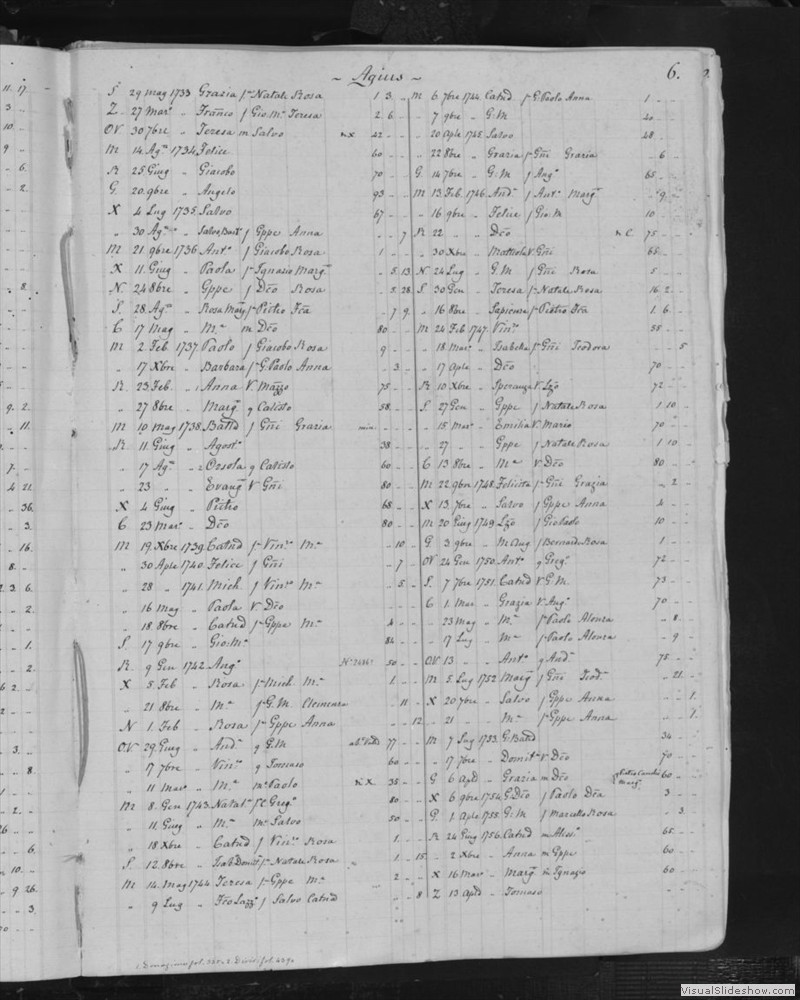 ~ Agius ~
6.
S 29 mag 1733 Grazia f Natale Rosa 1 3 "
Z 27 Mar° " Franco f Gio. M. Teresa 2 6
OV 30 7bre " Teresa m Salvo N X 42
M 14 Ag° 1734 Felice 60
R 25 Giug " Giacobo 70
G. 20 9bre " Angelo 93
X 4 Lug 1735 Salvo 67
" 30 Ag° " Salvo Batt f Gppe Anna 7
M 21 9bre 1736 Ant° f Giacobo Rosa 1
X 11 Giug " Paola f Ignazio Marg. 5 13
N 24 8bre " Gppe f Dco Rosa 5 28
S. 28 Ag° " Rosa Mary f Pietro 7 9
C 17 Mag " Ma m Dco 80
M 2 Feb 1737 Paolo f Giacobo Rosa 9
" 17 Xbre " Barbara f G. Paolo Anna 3
R 23 Feb. " Anna V Mazzo 75
" 27 8bre " Marg. q Calisto 58
M 10 mag 1738 Battd f Gni Grazia min.
R. 11 Giug " Agost° 38
" 17 Ag° " Orsola q Calisto 60
" 23 " Evang V Gni 80
X 4 Giug " Pietro 68
C 23 Mar° " Dco 80
M 19 Xbre 1739 Catnd f Vin° Ma 10
" 30 Aple 1740 Felice f Gni 7
" 28 " 1741. Mich. f Vin° Ma 5
" 16 mag " Paola V Dco
" 18 8bre " Catnd f Gppe Ma 4
S. 17 9bre " Gio. M° 84
R. 9 Gen 1742 Ang° 50
X 5 Feb " Rosa f Mich. Ma 1
" 21 8bre " Ma f G. M. Clemenza 11
N 1 Feb " Rosa f Gppe Anna 12
OV 29 Giug " And° q G. M 77
" 17 7bre " Vin° q Tomaso 60
" 11 Mar° " Ma m Paolo N X 35
M 8 Gen 1743 Natal° Greg° 80
" 11 Giug " Ma m Salvo 50
" 18 Xbre " Catnd f Vin° Rosa 1
S 12 8bre " f Natale Rosa 1 15
M 14 mag 1744 Teresa f Gppe Ma 2
" 9 Lug " f Salvo Catnd 8
M 6 7bre 1744 Catnd f G. Paolo Anna 1
" 7 9bre " G. M 40
" 20 Aple 1745 Salvo 48
" 22 8bre " Grazia f Gni Grazia 6
G. 14 7bre " G. M f Ang° 65
M 13 Feb 1746 And° f Ant° Marg. 9
" 16 9bre " Felice f Gio. M 10
R 22 " Dco N C. 75
" 30 Xbre " V Gni 65
N 24 Lug " G. M f Gni Rosa 5
S 30 Gen " Teresa f Natale Rosa 16 2
" 16 8bre " Sapienza f Pietro 1 6
M 24 Feb 1747 Vin° 55
" 18 Mar° " Isabella f Gni Teodora 5
" 17 Aple " Dco 70
R 10 Xbre " Speranza V Lzo 72
S 27 Gen " Gppe f Natale Rosa 1 10
" 15 Mar° " Emilia V Mario 70
" 27 " Gppe f Natale Rosa 1 10
C 13 8bre " Ma V Dco 80
M 22 9bre 1748 Felicita f Gni Grazia 2
X 13 7bre " Salvo f Gppe Anna 4
M 20 Giug 1749 Lzo f Gio Paolo 10
G 3 9bre " M Aug f Bernardo Rosa 1
OV 24 Gen 1750 Ant° q Greg° 72
S. 7 7bre 1751 Catnd V G. M. 73
C 1 Mar° " Grazia V Aug° 70
" 23 mag " Ma f Paolo Alonza 8
" 17 Lug " Ma f Paolo Alonza 9
OV 13 " " Ant° q And° 75
M 5 Lug 1752 Marg f Gni Teod° 21
X 20 7bre " Salvo f Gppe Anna 1
" 21 " Ma f Gppe Anna 1
M 7 Lug 1753 G. Battd 34
" 17 7bre " V Dco 70
G 6 Aple " Grazia m Dco 60
X 6 9bre 1754 G. Dco f Paolo 3
G. 1 Aple 1755 G. M f Marcello Rosa 3
R 24 Giug 1756 Catnd m Aless° 65
" 2 Xbre " Anna m Gppe 60
X 16 Mar° " Marg. m Ignazio 60
Z 13 Aple " Tomaso
VisualSlideshow.com